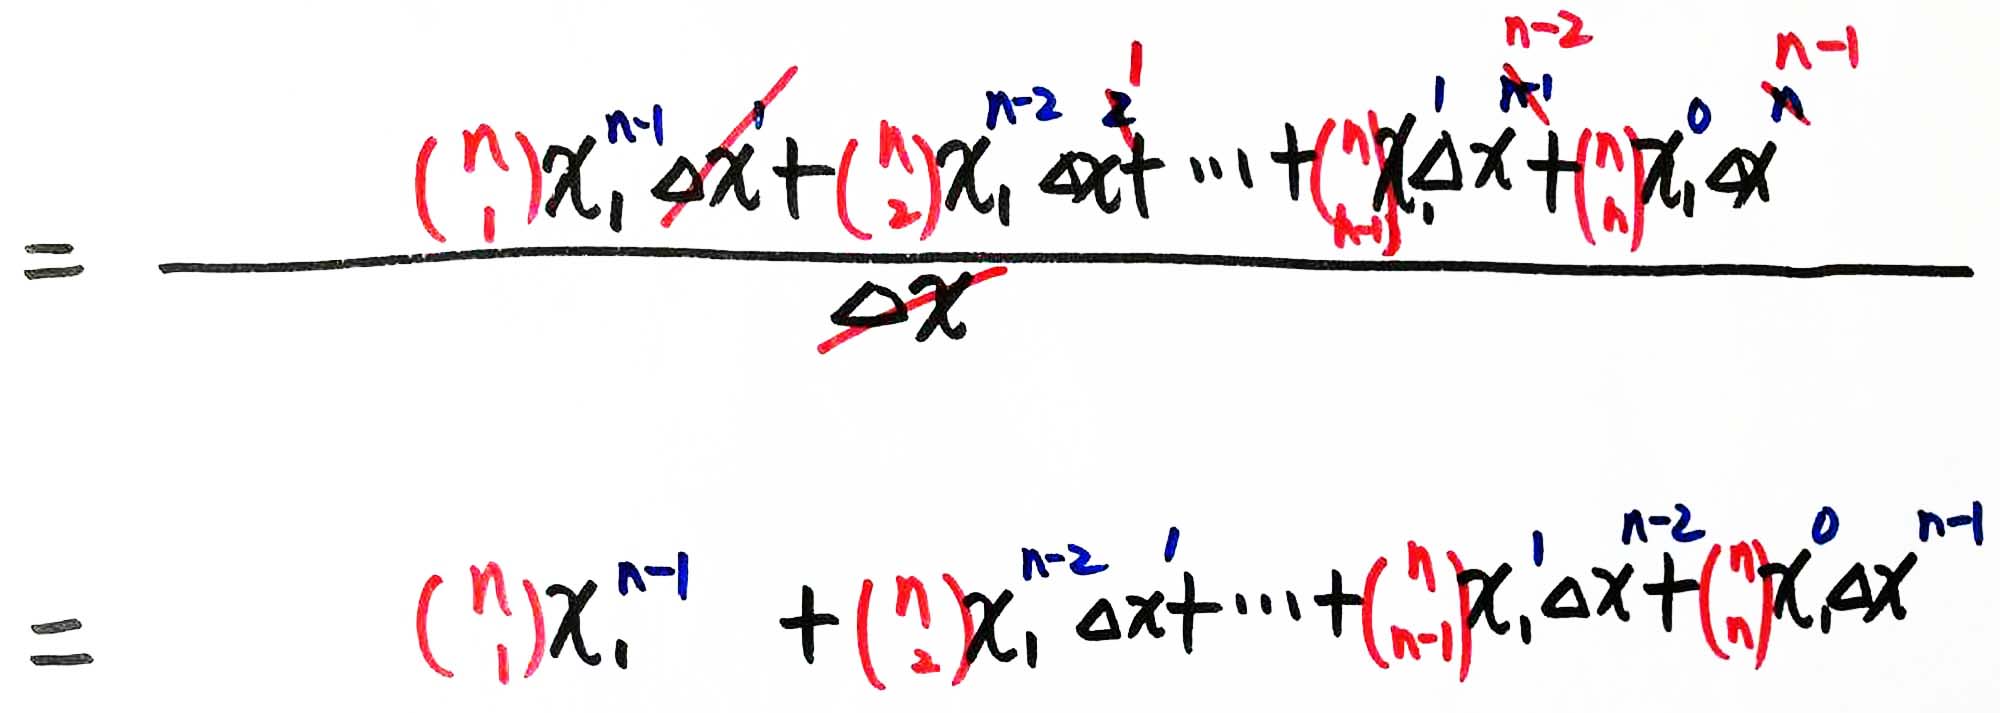 = \frac{\binom{n}{1} x_1^{n-1} \cancel{\Delta x^1} + \binom{n}{2} x_1^{n-2} \Delta x^{\cancel{2} 1} + \cdots + \binom{n}{n-1} x_1^1 \Delta x^{\cancel{n-1} n-2} + \binom{n}{n} x_1^0 \Delta x^{\cancel{n} n-1}}{\cancel{\Delta x}}
= \binom{n}{1} x_1^{n-1} + \binom{n}{2} x_1^{n-2} \Delta x^1 + \cdots + \binom{n}{n-1} x_1^1 \Delta x^{n-2} + \binom{n}{n} x_1^0 \Delta x^{n-1}